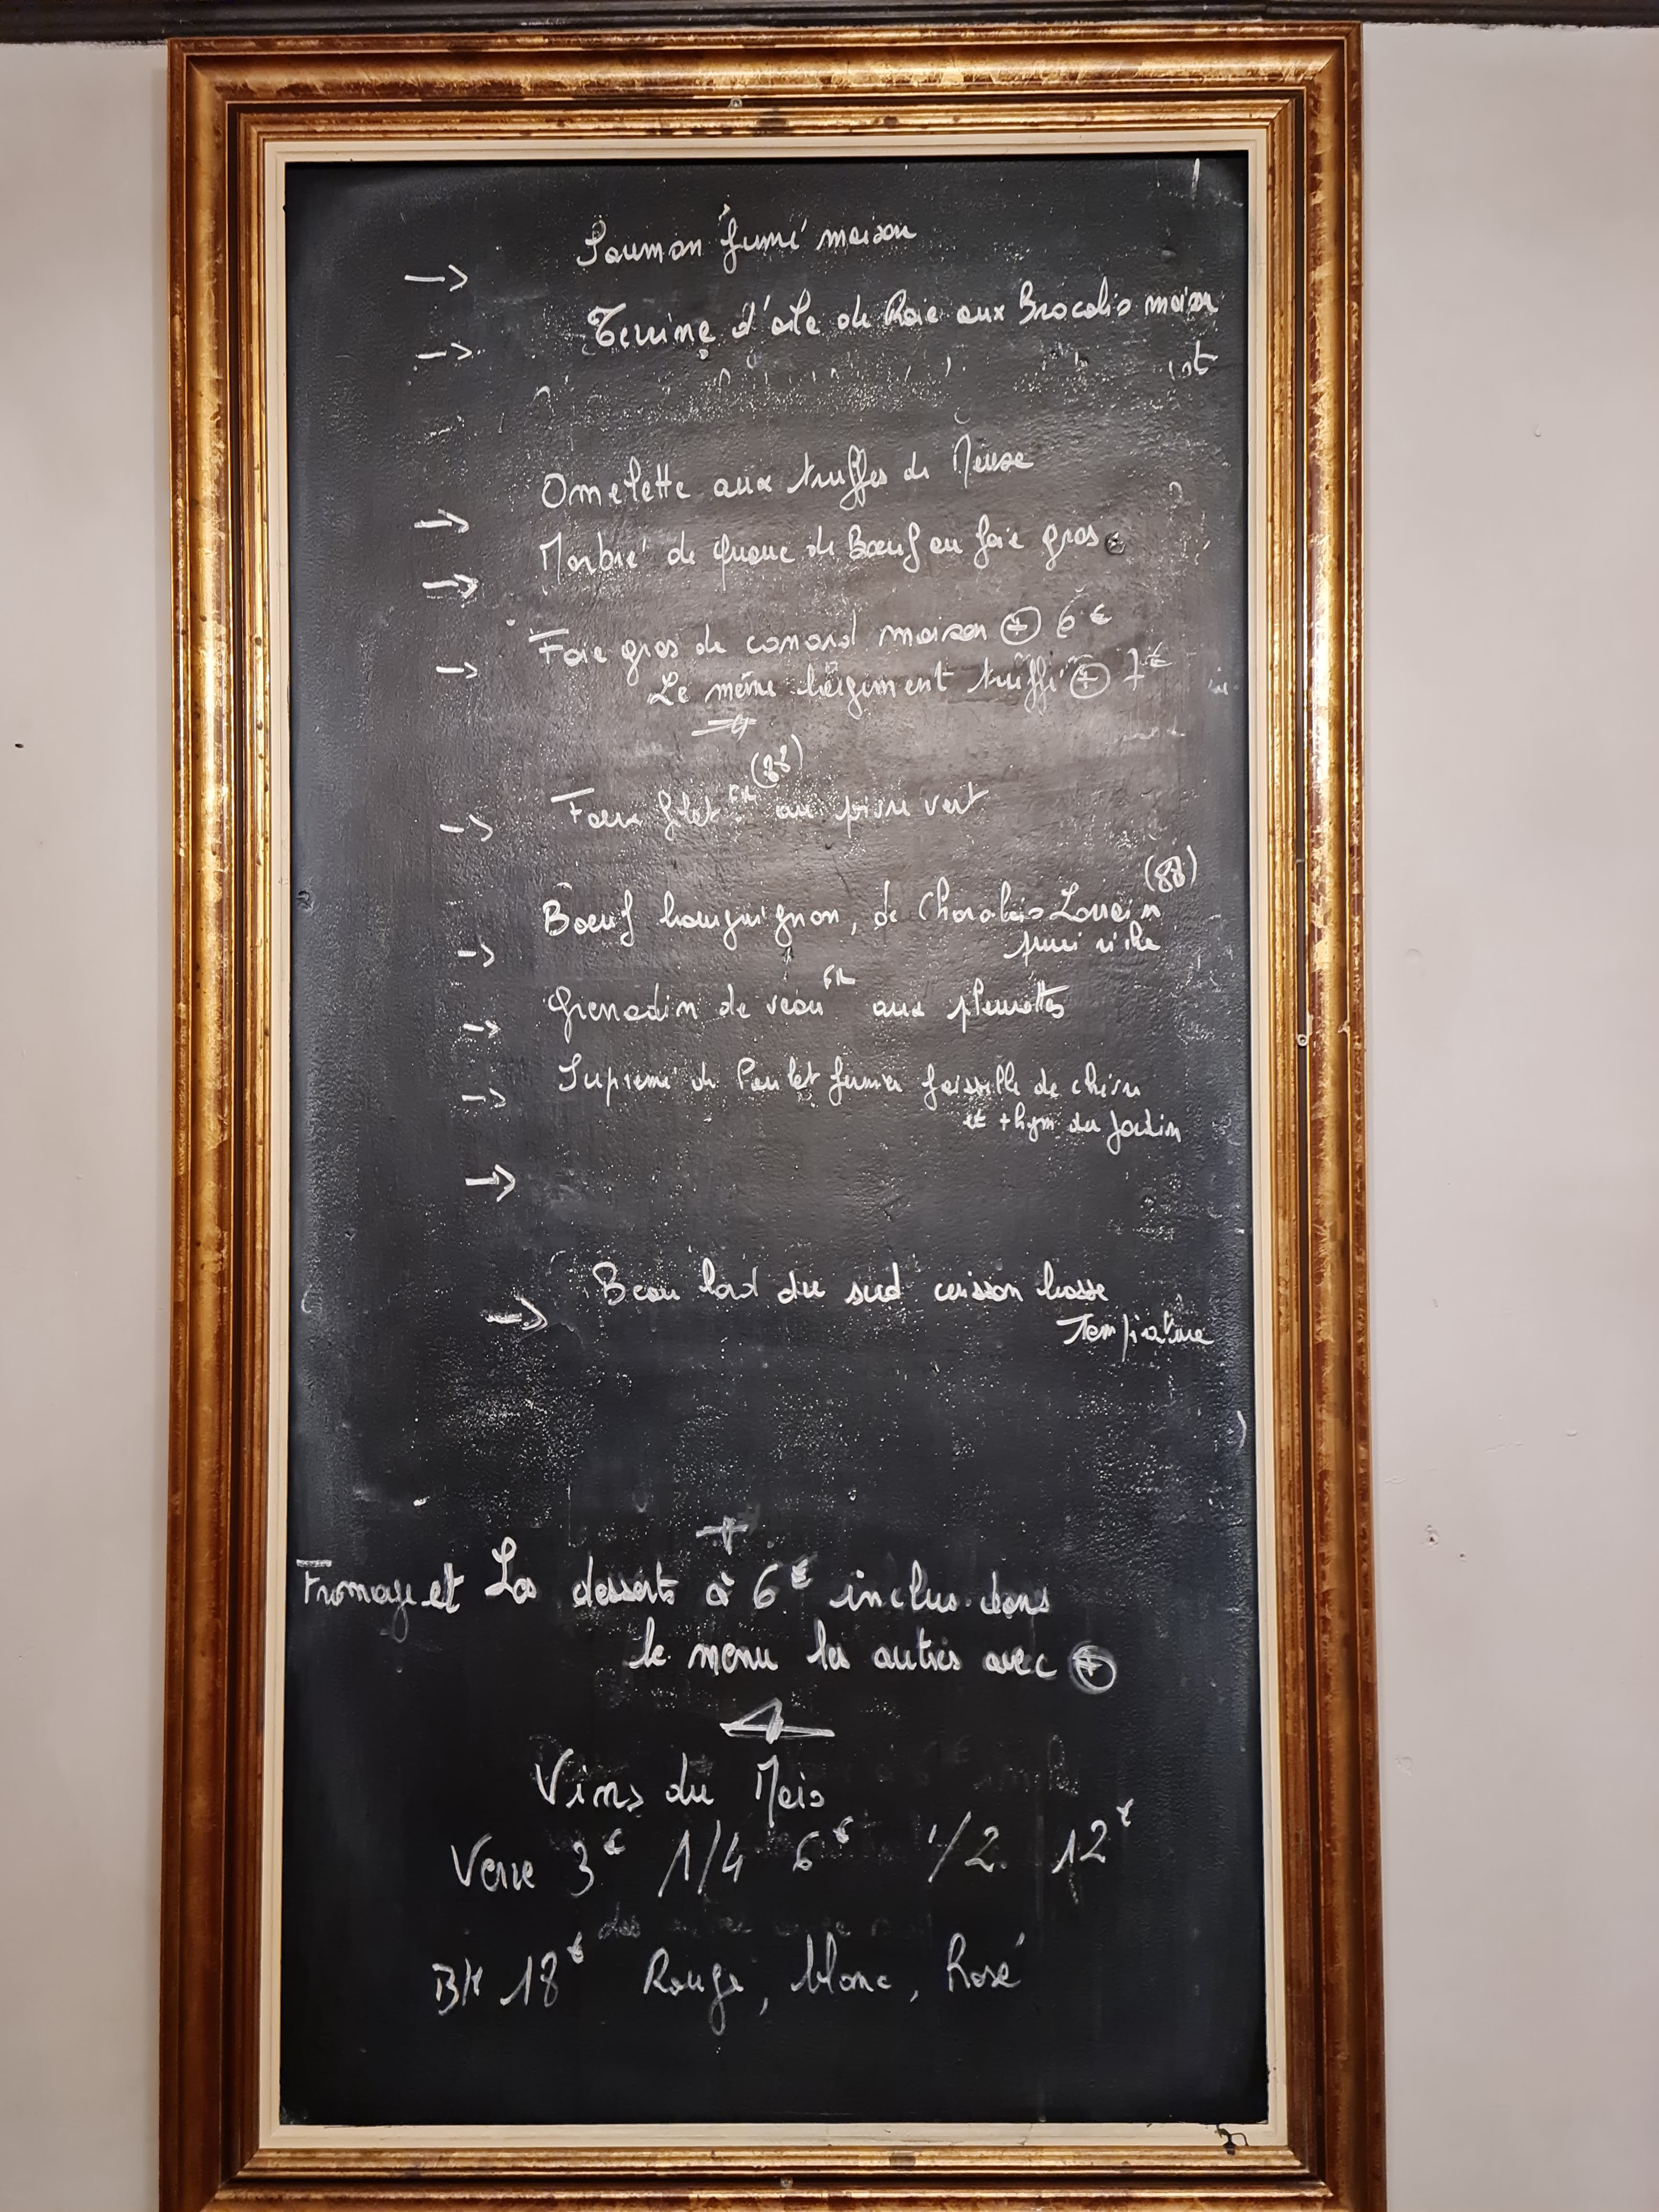 Saumon fumé maison
Terrine d'aile de Raie aux Brocolis maison
Omelette aux truffes de Meuse
Marbré de queue de Bœuf au foie gras
Foie gras de canard maison + 6€
Le même légèrement truffé + 7€
(88)
Faux filet FR au poivre vert
(88)
Bœuf bourguignon, de Charolais Lorrain
purée
Grenadin de veau FR aux pleurottes
Suprème de Poulet fermier faisselle de chèvre
et thym du Jardin
Beau lard du sud cuisson basse
Température
+
Fromage et Les desserts à 6€ inclus dans
le menu les autres avec +
Vins du Mois
Verre 3€ 1/4 6€ 1/2 12€
Blle 18€ Rouge, blanc, Rosé